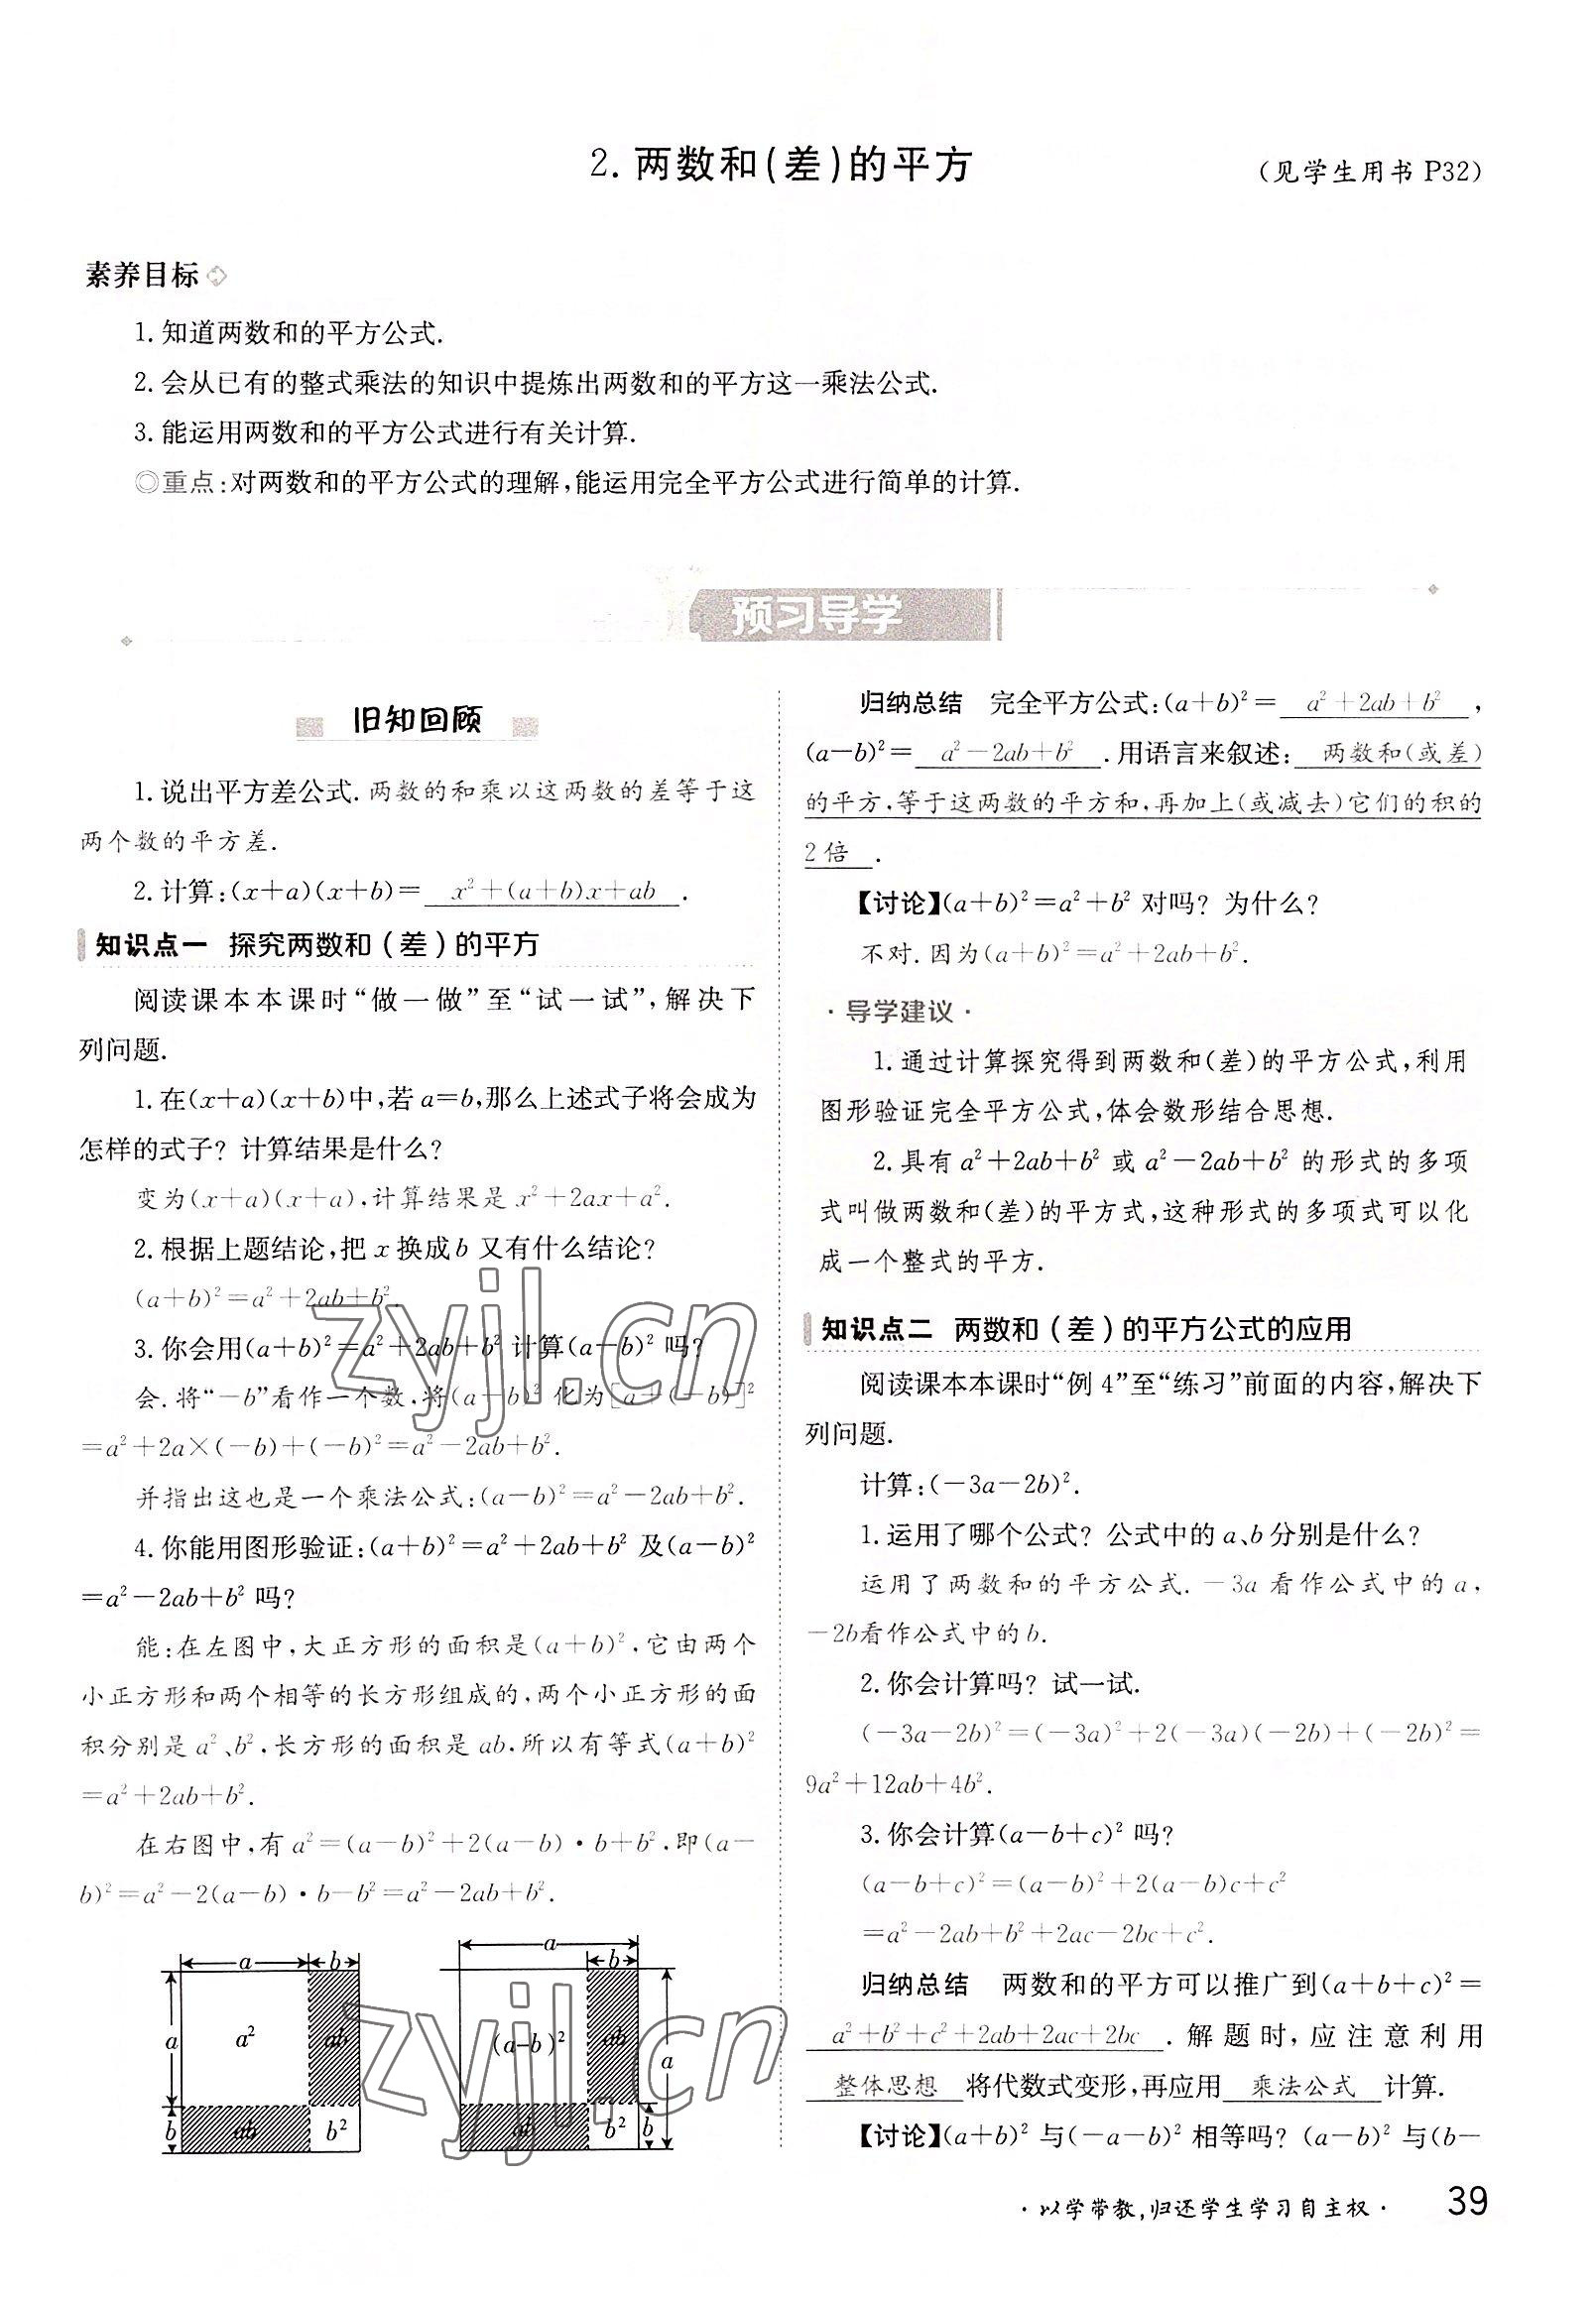 2. 两数和(差)的平方
(见学生用书 P32)
素养目标
1. 知道两数和的平方公式.
2. 会从已有的整式乘法的知识中提炼出两数和的平方这一乘法公式.
3. 能运用两数和的平方公式进行有关计算.
◎重点:对两数和的平方公式的理解,能运用完全平方公式进行简单的计算.
预习导学
旧知回顾
1. 说出平方差公式. 两数的和乘以这两数的差等于这
两个数的平方差.
2. 计算:(x+a)(x+b)= x²+(a+b)x+ab .
知识点一 探究两数和(差)的平方
阅读课本本课时“做一做”至“试一试”,解决下
列问题.
1. 在(x+a)(x+b)中,若 a=b,那么上述式子将会成为
怎样的式子? 计算结果是什么?
变为(x+a)(x+a),计算结果是 x²+2ax+a².
2. 根据上题结论,把 x 换成 b 又有什么结论?
(a+b)²=a²+2ab+b².
3. 你会用(a+b)²=a²+2ab+b² 计算(a-b)² 吗?
会. 将“-b”看作一个数,将(a-b)² 化为[a+(-b)]²
=a²+2a×(-b)+(-b)²=a²-2ab+b².
并指出这也是一个乘法公式:(a-b)²=a²-2ab+b².
4. 你能用图形验证:(a+b)²=a²+2ab+b² 及(a-b)²
=a²-2ab+b² 吗?
能:在左图中,大正方形的面积是(a+b)²,它由两个
小正方形和两个相等的长方形组成的,两个小正方形的面
积分别是 a²、b²,长方形的面积是 ab,所以有等式(a+b)²
=a²+2ab+b².
在右图中,有 a²=(a-b)²+2(a-b)·b+b²,即(a-
b)²=a²-2(a-b)·b-b²=a²-2ab+b².
a b
a a² ab
b ab b²
a
b
(a-b)² ab a
ab b² b
归纳总结 完全平方公式:(a+b)²= a²+2ab+b² ,
(a-b)²= a²-2ab+b² .用语言来叙述: 两数和(或差)
的平方,等于这两数的平方和,再加上(或减去)它们的积的
2倍 .
【讨论】(a+b)²=a²+b² 对吗? 为什么?
不对. 因为(a+b)²=a²+2ab+b².
·导学建议·
1. 通过计算探究得到两数和(差)的平方公式,利用
图形验证完全平方公式,体会数形结合思想.
2. 具有 a²+2ab+b² 或 a²-2ab+b² 的形式的多项
式叫做两数和(差)的平方式,这种形式的多项式可以化
成一个整式的平方.
知识点二 两数和(差)的平方公式的应用
阅读课本本课时“例 4”至“练习”前面的内容,解决下
列问题.
计算:(-3a-2b)².
1. 运用了哪个公式? 公式中的 a、b 分别是什么?
运用了两数和的平方公式. -3a 看作公式中的 a,
-2b看作公式中的 b.
2. 你会计算吗? 试一试.
(-3a-2b)²=(-3a)²+2(-3a)(-2b)+(-2b)²=
9a²+12ab+4b².
3. 你会计算(a-b+c)² 吗?
(a-b+c)²=(a-b)²+2(a-b)c+c²
=a²-2ab+b²+2ac-2bc+c².
归纳总结 两数和的平方可以推广到(a+b+c)²=
a²+b²+c²+2ab+2ac+2bc . 解题时,应注意利用
整体思想 将代数式变形,再应用 乘法公式 计算.
【讨论】(a+b)² 与(-a-b)² 相等吗? (a-b)² 与(b-
·以学带教,归还学生学习自主权·
39
zyjl.cn
zyjl.cn